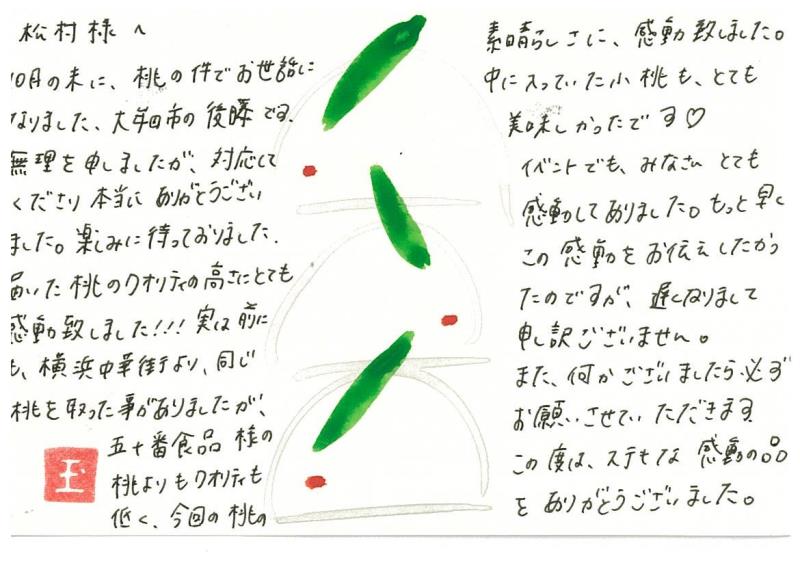 松村様へ
10月の末に、桃の件でお世話に
なりました、大牟田市の後藤です。
無理を申しましたが、対応して
くださり本当にありがとうござい
ました。楽しみに待っておりました。
届いた桃のクオリティの高さにとても
感動致しました!!!実は前に
も、横浜中華街より、同じ
桃を取った事がありましたが、
五十番食品様の
桃よりもクオリティも
低く、今回の桃の
素晴らしさに、感動致しました。
中に入っていた小桃も、とても
美味しかったです♡
イベントでも、みなさんとても
感動してありました。もっと早く
この感動をお伝えしたかっ
たのですが、遅くなりまして
申し訳ございません。
また、何かございましたら必ず
お願いさせていただきます。
この度は、ステキな感動の品
をありがとうございました。